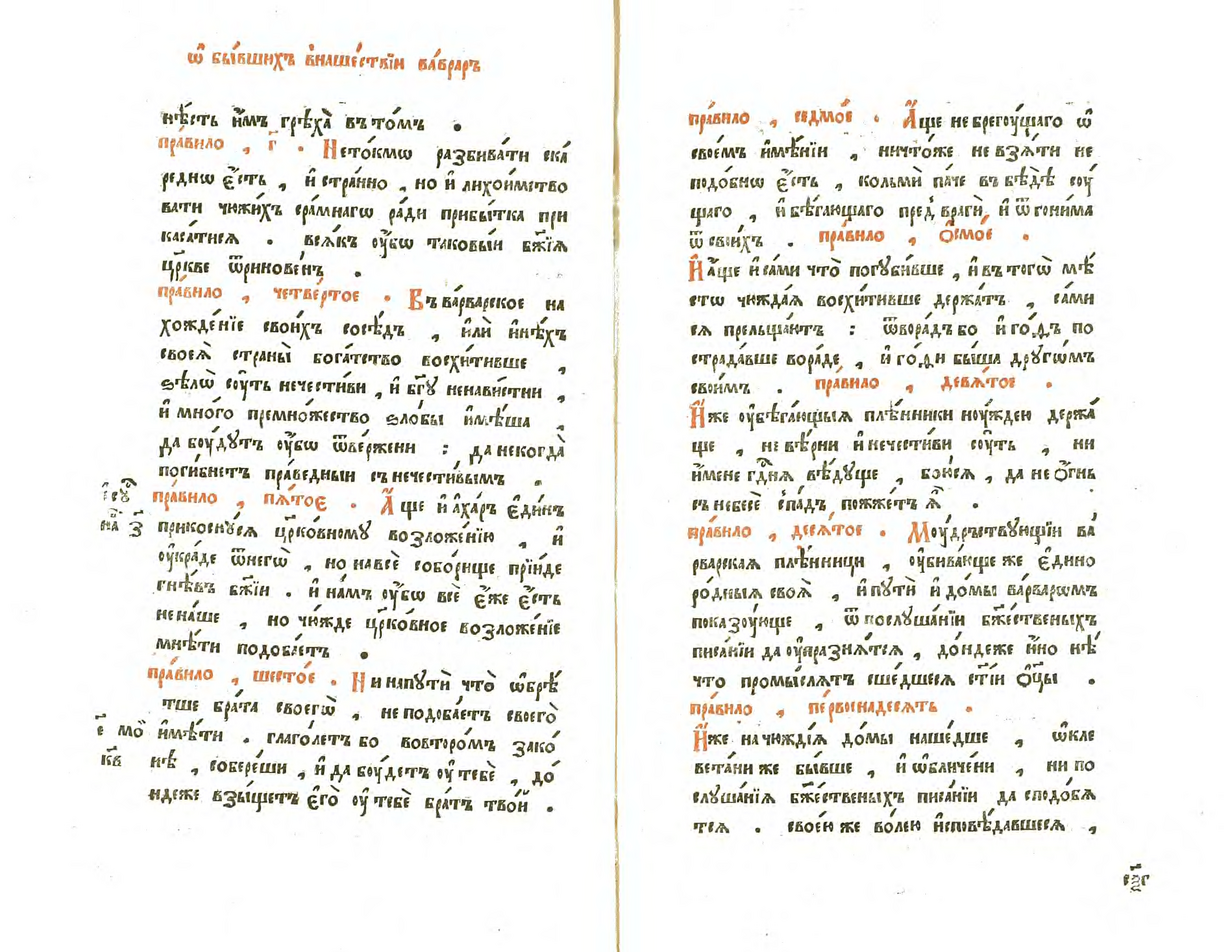 ѿ бы́вшихъ в̾наше́ствїи ва́врарѣ
нѣ́сть и҆̀мъ грѣха̀ въто́мъ .
пра́вило , г҃ . Нето́кмѡ разбива́ти ска́
редно є҆́сть , и҆ стра́нно , но и҆ лихои́мство
вати чюжи́хъ сра́мнагѡ ра́ди прибы́тка при
каса́тися . вся́къ оу҆́бѡ таковы́и бж҃їѧ
цр҃кве ѿринове́нъ .
пра́вило , четве́ртое . Въ ва́рварское на
хожде́нїе свои́хъ сосѣ́дъ , и҆лѝ и҆нѣ́хъ
своеѧ̀ страны̀ бога́тство восхи́тивше ,
ѕѣлѡ̀ соу́ть нечести́ви , и҆ бг҃ꙋ ненави́стни ,
и҆ мно́го премно́жество ѕло́бы и҆мѣ́ша ,
да боу́дꙋтъ оу҆́бѡ ѿве́ржени : да некогда̀
поги́бнетъ пра́ведныи съ нечести́вымъ .
і҆сꙋ҃ на҃ з҃
пра́вило , пѧ́тоє . А҆́ще и҆ а҆ха́ръ є҆ди́нъ
прикоснꙋ́сѧ цр҃ко́вномꙋ возложе́нїю , и҆
оу҆кра́де ѿнегѡ̀ , но на всѐ собо́рище прїи́де
гнѣ́въ бж҃їи . и҆ на́мъ оу҆́бѡ всѐ є҆́же є҆́сть
не на́ше , но чю́жде цр҃ко́вное возложе́нїе
мнѣ́ти подоба́етъ .
пра́вило , шесто́е . Ни на пꙋтѝ что̀ ѡ҆брѣ́
тше бра́та своегѡ̀ , не подоба́етъ своего̀
е҃ мо҃ кв҃
и҆мѣ́ти . глаго́летъ бо вовторо́мъ зако́
нѣ , собере́ши , и҆ да боу́детъ оу҆ тебѐ , до́
ндеже взы́щетъ є҆го̀ оу҆ тебѐ бра́тъ тво́й .
пра́вило , седмо́е . А҆́ще небрегоу́щаго ѡ҆
свое́мъ и҆мѣ́нїи , ничто́же не взѧ́ти не
подо́бнѡ є҆́сть , кольмѝ па́че въ бѣ́дѣ соу́
щаго , и҆ бѣ́гающаго пред̾ врагѝ , и҆ ѿ гони́ма
ѿ свои́хъ . пра́вило , ѻ҆смо́е .
И҆ а҆́ще и҆ са́ми что̀ погꙋби́вше , и҆ въ тогѡ̀ мѣ́
стѡ чюжда́ѧ восхи́тивше держа́тъ , са́ми
сѧ прельща́ютъ : ѿвора́дъ бо и҆ го́д̾дъ по
страда́вше вора́де , и҆ го́д̾ди бы́ша дрꙋгѡ́мъ
свои́мъ . пра́вило , девѧ́тое .
И҆́же оу҆бѣ́гающыѧ плѣ́нники ноу́ждею держа́
ще , невѣ́рни и҆ нечести́ви соу́ть , ни
и҆́мене гд҃нѧ вѣ́дꙋще , бою́сѧ , да не ѻ҆́гнь
съ небесѐ спа́дъ пожже́тъ ѧ҆̀ .
пра́вило , десѧ́тое . Моу́дръствꙋющїи ва́
рварскаѧ плѣ́нници , оу҆бива́юще же є҆ди́но
ро́дныѧ своѧ̀ , и҆ пꙋтѝ и҆ до́мы ва́рварѡмъ
показоу́юще , ѿ послꙋша́нїи бж҃е́ственыхъ
писа́нїи да оу҆празнѧ́тсѧ , до́ндеже и҆́но нѣ́
что промы́слѧтъ сше́дшесѧ ст҃і́и ѻ҆ц҃ы .
пра́вило , пе́рвоенадесѧть .
И҆́же на чю́ждїѧ до́мы наше́дше , ѡ҆кле
вета́ни же бы́вше , и҆ ѡ҆бличе́ни , ни по
слꙋша́нїѧ бж҃е́ственыхъ писа́нїи да сподо́бѧ
тсѧ . свое́ю же во́лею и҆сповѣ́давшесѧ ,
сл҃г